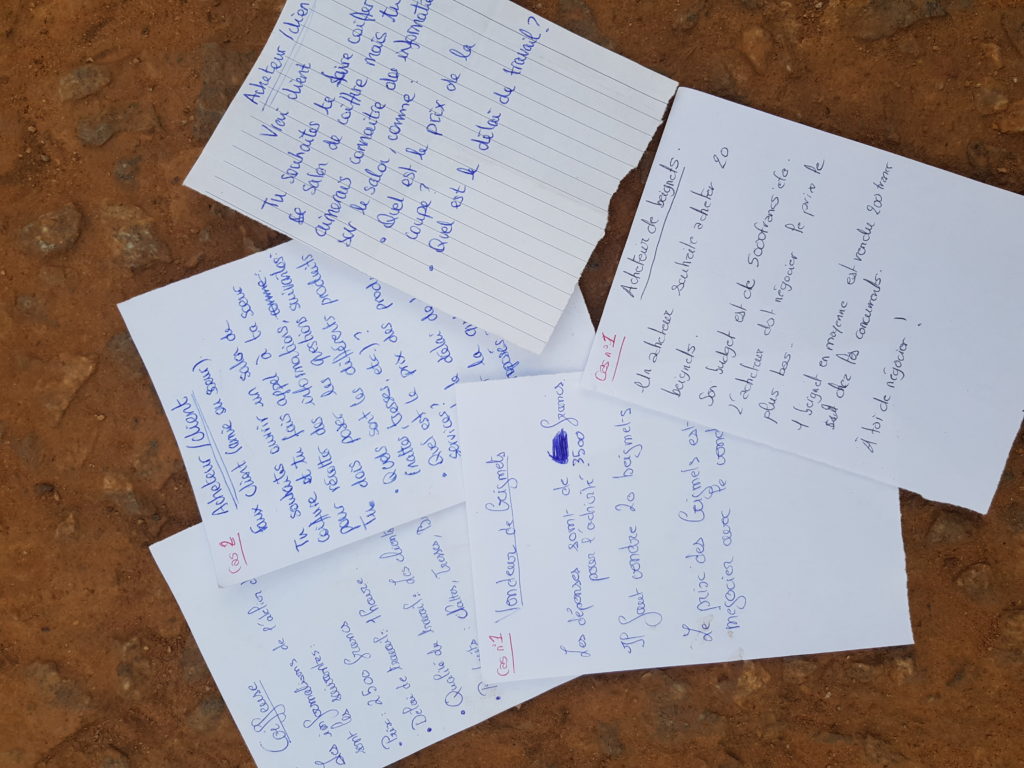 Acheteur / clien
Vrai client
Tu souhaites te faire coiffer
salon de coiffure mais tu
aimerais connaitre des informati
sur le salon, comme :
• Quel est le prix de la
coupe ?
• Quel est le délai de travail ?
Cas 2
Acheteur / Client
Faux Client (ame sa sœur)
Tu souhaites ouvrir un salon de
coiffure et tu fais appel à ta sœur
pour récolter des informations comme
Tu dois poser les questions suivantes.
• Quels sont les différents produits
(nattes, tresses, etc.) ?
• Quel est le prix des prod
services ?
le délai de
la qu
Coiffeuse
Les informations de l'atelier
sont les suivantes :
• Prix : 2500 francs
• Délai de travail : 1 heure
• Qualité de travail : Les clients
Nattes, Tresses, B
Cas n°1
Vendeur de beignets
Les dépenses sont de 3500 francs
pour l'activité
Il faut vendre 20 beignets
Le prix des beignets est
négocier avec le vend
Cas n°1
Acheteur de beignets.
Un acheteur souhaite acheter 20
beignets.
Son budget est de 5000 francs cfa.
L'acheteur doit négocier le prix le
plus bas.
1 beignet en moyenne est vendu 200 franc
chez les concurrents.
À toi de négocier !